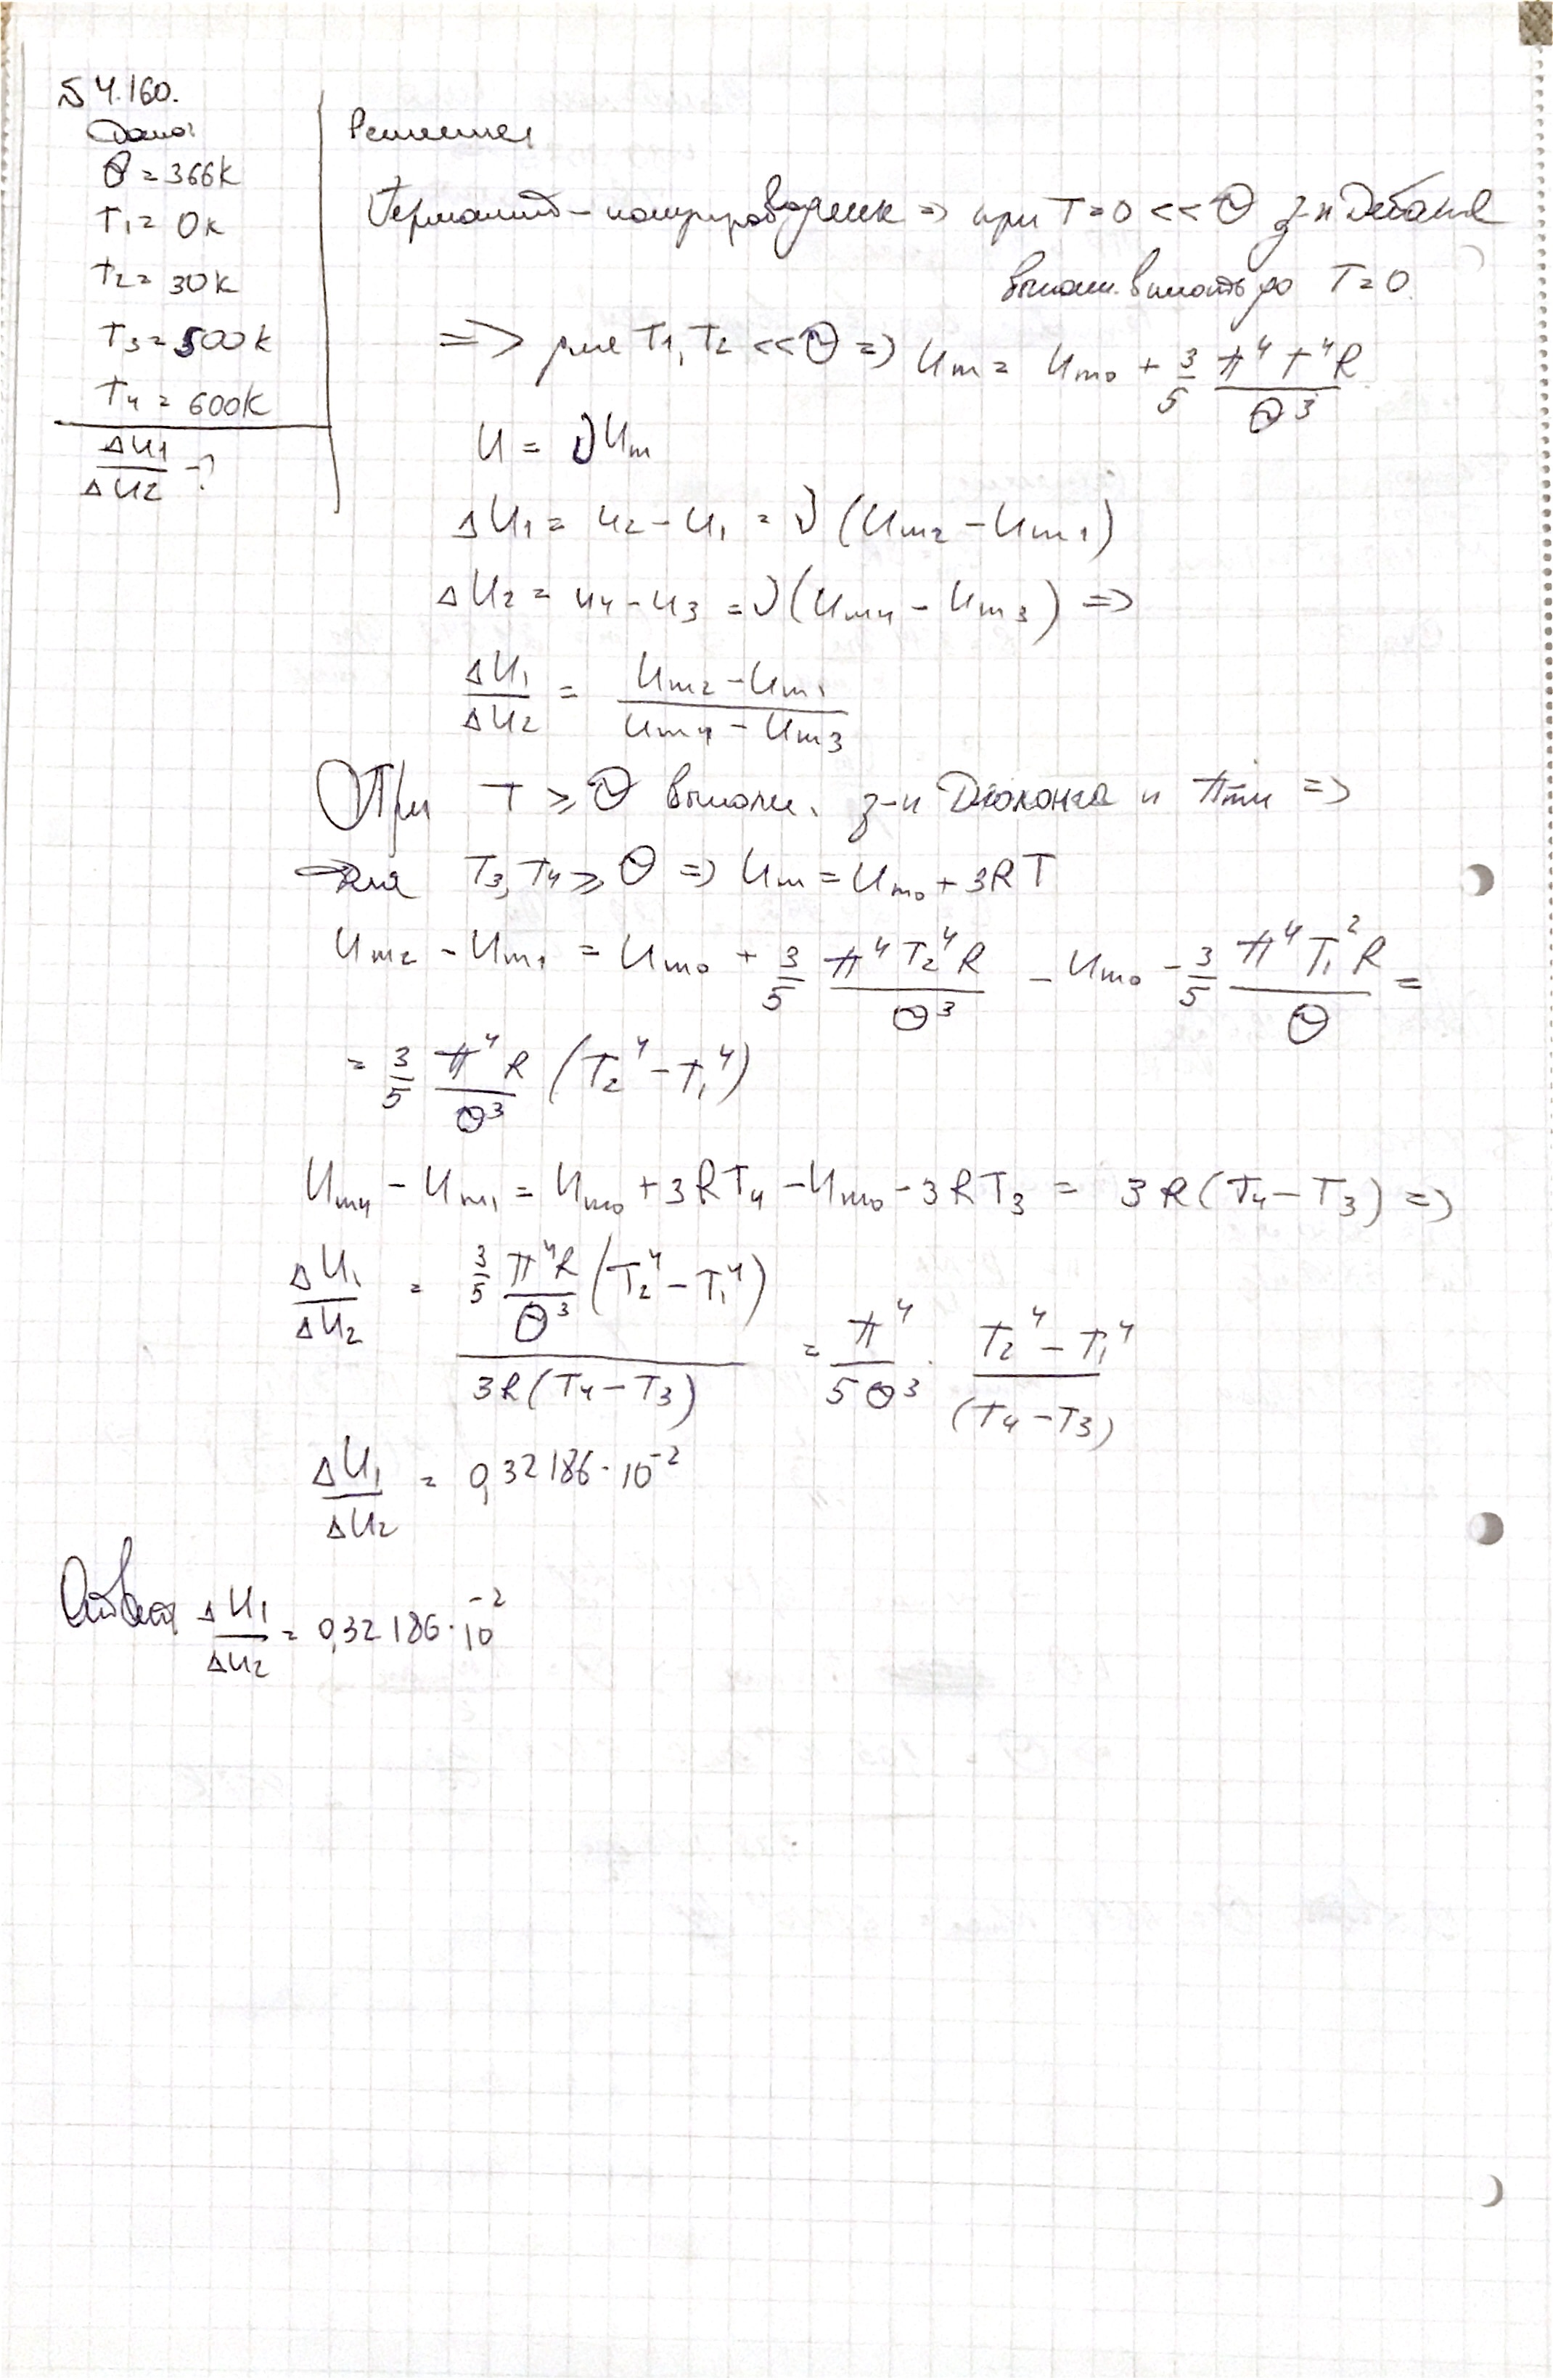 № 4.160.
Дано:
θ = 366K
T₁ = 0K
T₂ = 30K
T₃ = 500K
T₄ = 600K
ΔU₁/ΔU₂ - ?
Решение
Германий – полупроводник => при T=0 << θ з-н Дебая
выполн. вплоть до T=0.
=> для T₁, T₂ << θ => Uₘ = Uₘ₀ + 3/5 π⁴T⁴R/θ³
U = νUₘ
ΔU₁ = U₂ - U₁ = ν(Uₘ₂ - Uₘ₁)
ΔU₂ = U₄ - U₃ = ν(Uₘ₄ - Uₘ₃) =>
ΔU₁/ΔU₂ = (Uₘ₂ - Uₘ₁)/(Uₘ₄ - Uₘ₃)
При T ⩾ θ выполн. з-н Дюлонга и Пти =>
=> для T₃, T₄ ⩾ θ => Uₘ = Uₘ₀ + 3RT
Uₘ₂ - Uₘ₁ = Uₘ₀ + 3/5 π⁴T₂⁴R/θ³ - Uₘ₀ - 3/5 π⁴T₁²R/θ =
= 3/5 π⁴R/θ³ (T₂⁴ - T₁⁴)
Uₘ₄ - Uₘ₁ = Uₘ₀ + 3RT₄ - Uₘ₀ - 3RT₃ = 3R(T₄ - T₃) =>
ΔU₁/ΔU₂ = 3/5 π⁴R/θ³ (T₂⁴ - T₁⁴)/3R(T₄ - T₃) = π⁴/5θ³ · T₂⁴ - T₁⁴/(T₄ - T₃)
ΔU₁/ΔU₂ = 0,32186·10⁻²
Ответ: ΔU₁/ΔU₂ = 0,32186·10⁻²